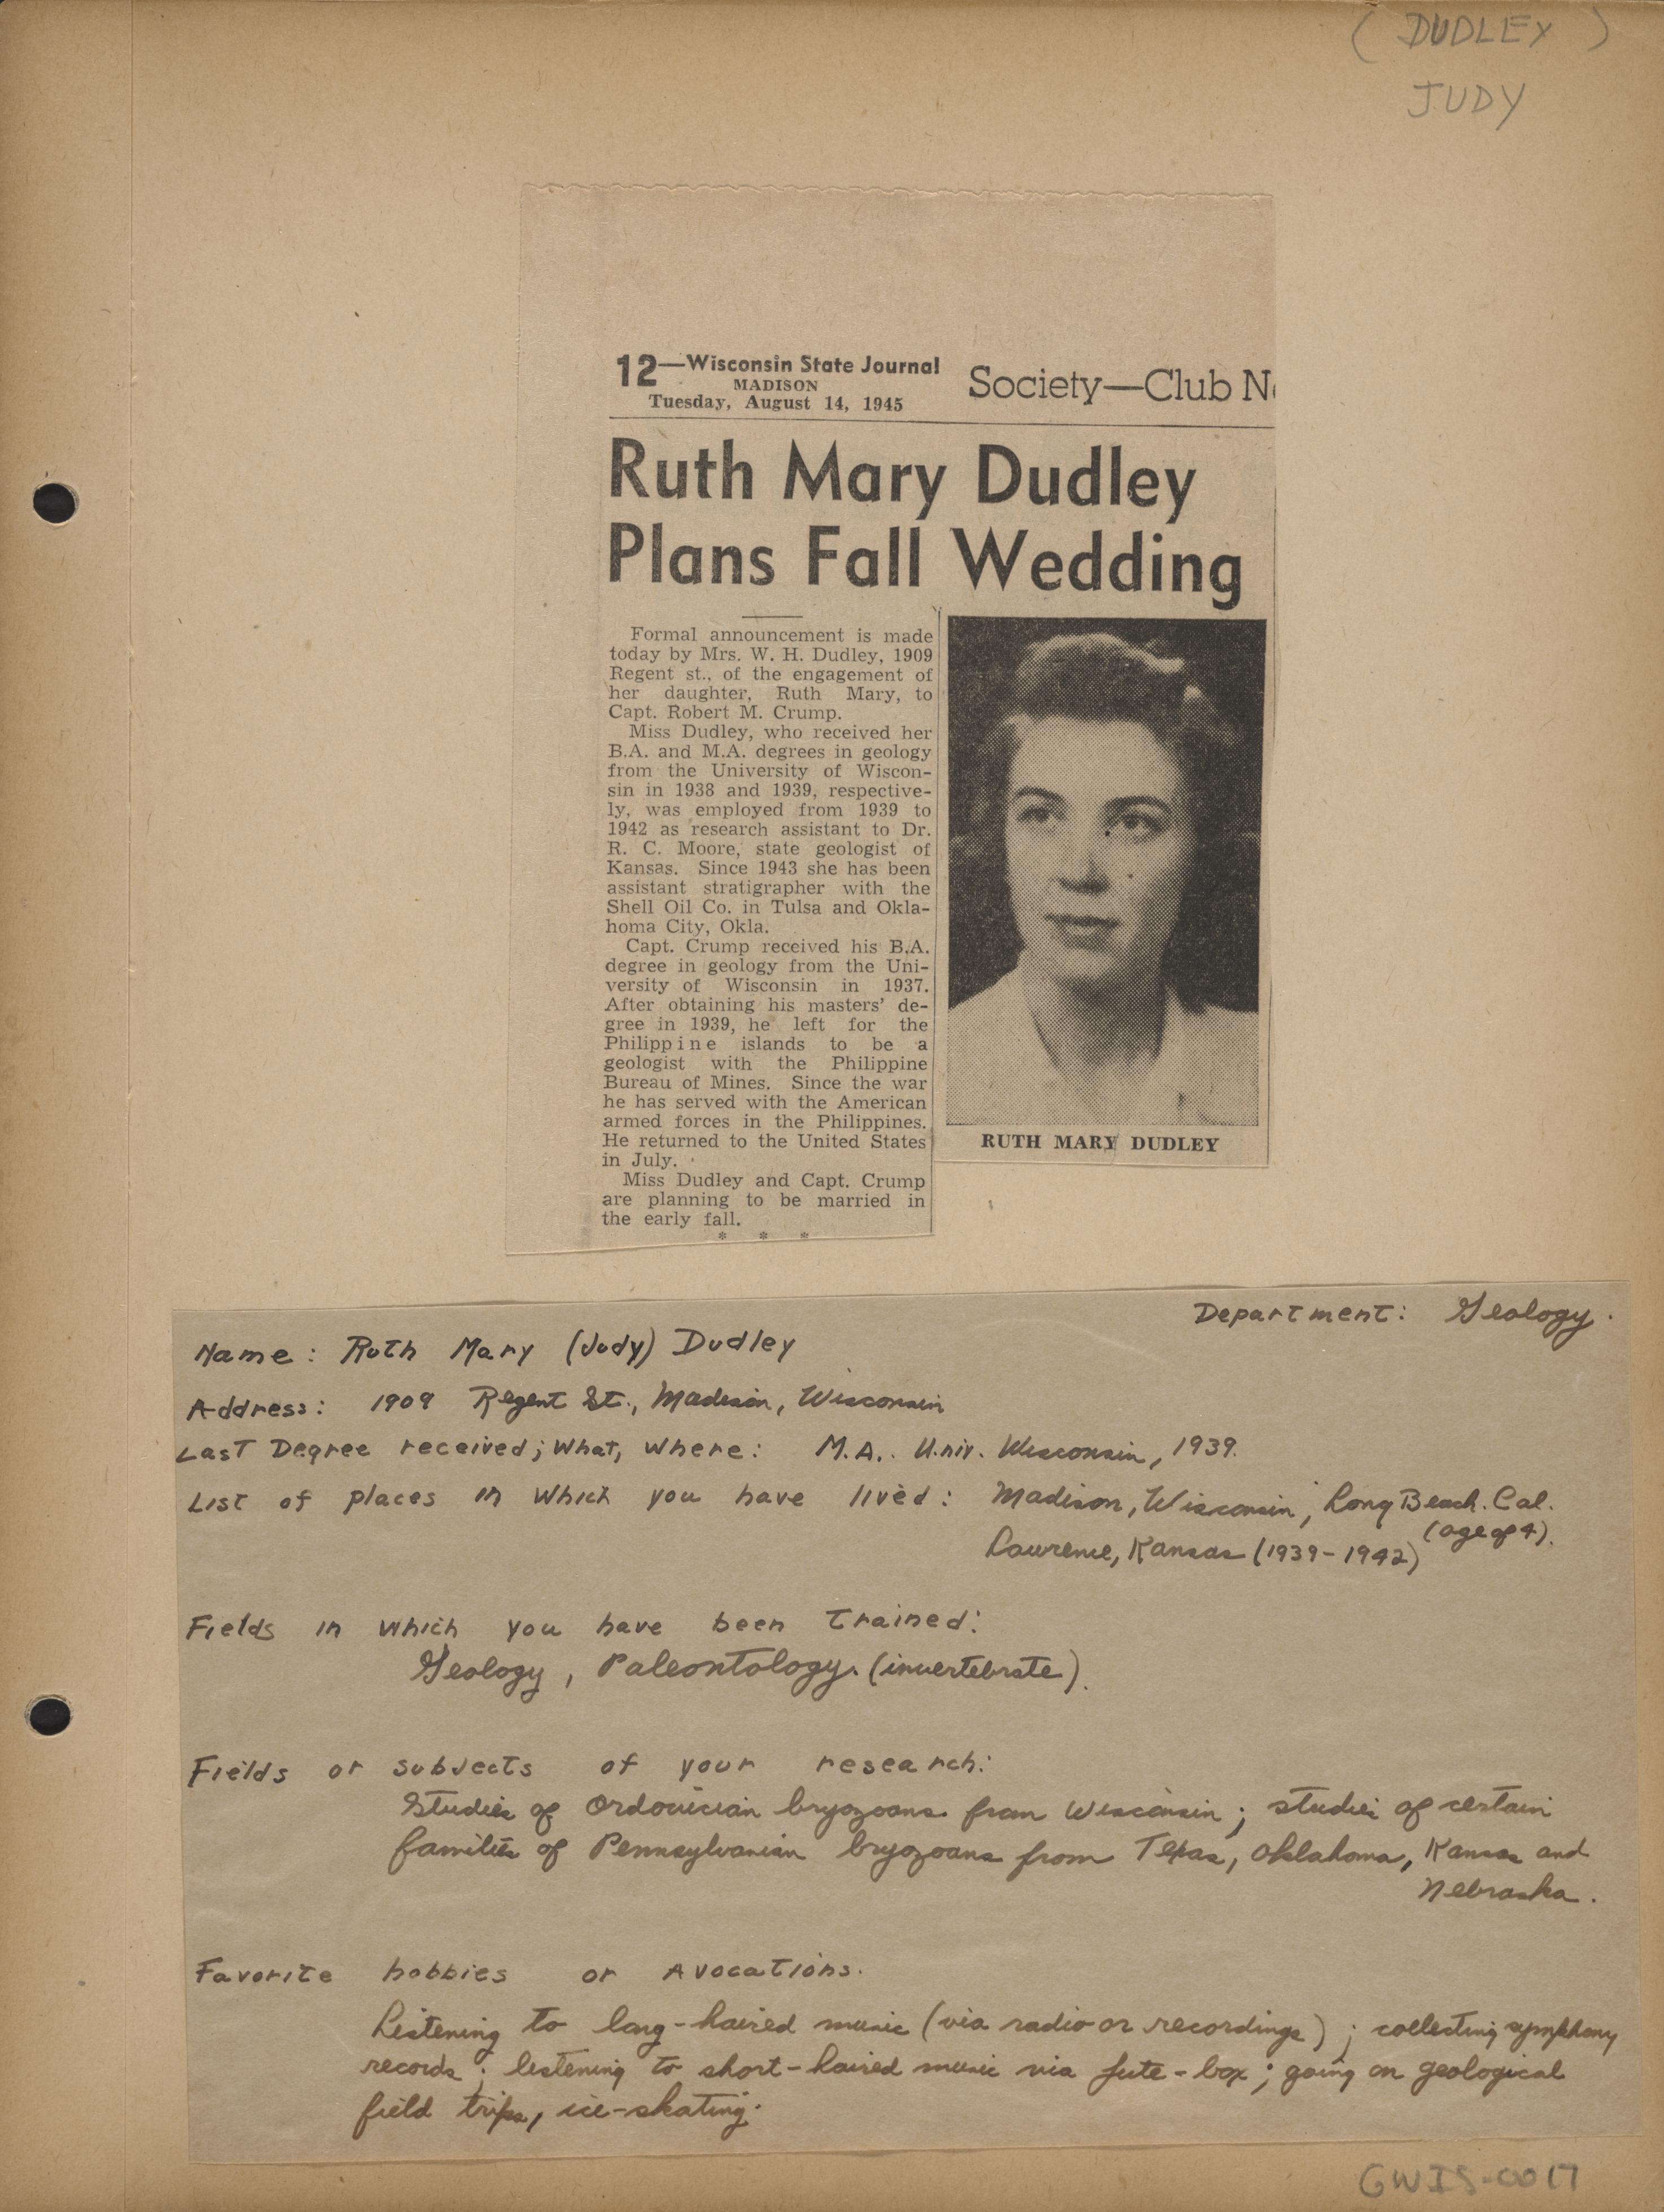 ( DUDLEY )
JUDY
12—Wisconsin State Journal
MADISON
Tuesday, August 14, 1945
Society—Club N
Ruth Mary Dudley
Plans Fall Wedding
Formal announcement is made
today by Mrs. W. H. Dudley, 1909
Regent st., of the engagement of
her daughter, Ruth Mary, to
Capt. Robert M. Crump.
Miss Dudley, who received her
B.A. and M.A. degrees in geology
from the University of Wiscon-
sin in 1938 and 1939, respective-
ly, was employed from 1939 to
1942 as research assistant to Dr.
R. C. Moore, state geologist of
Kansas. Since 1943 she has been
assistant stratigrapher with the
Shell Oil Co. in Tulsa and Okla-
homa City, Okla.
Capt. Crump received his B.A.
degree in geology from the Uni-
versity of Wisconsin in 1937.
After obtaining his masters' de-
gree in 1939, he left for the
Philippine islands to be a
geologist with the Philippine
Bureau of Mines. Since the war
he has served with the American
armed forces in the Philippines.
He returned to the United States
in July.
Miss Dudley and Capt. Crump
are planning to be married in
the early fall.
* * *
RUTH MARY DUDLEY
Department: Geology.
Name: Ruth Mary (Judy) Dudley
Address: 1909 Regent St., Madison, Wisconsin
Last Degree received; What, Where: M.A.. Univ. Wisconsin, 1939.
List of places in which you have lived: Madison, Wisconsin, Long Beach. Cal.
(age of 4).
Lawrence, Kansas (1939-1942)
Fields in which you have been trained:
Geology, Paleontology. (invertebrate).
Fields or subjects of your research:
Studies of Ordovician bryozoans from Wisconsin; studies of certain
families of Pennsylvanian bryozoans from Texas, Oklahoma, Kansas and
Nebraska.
Favorite hobbies or avocations.
Listening to long-haired music (via radio or recordings); collecting symphony
records; listening to short-haired music via jute-box; going on geological
field trips, ice-skating.
GWIS-0017